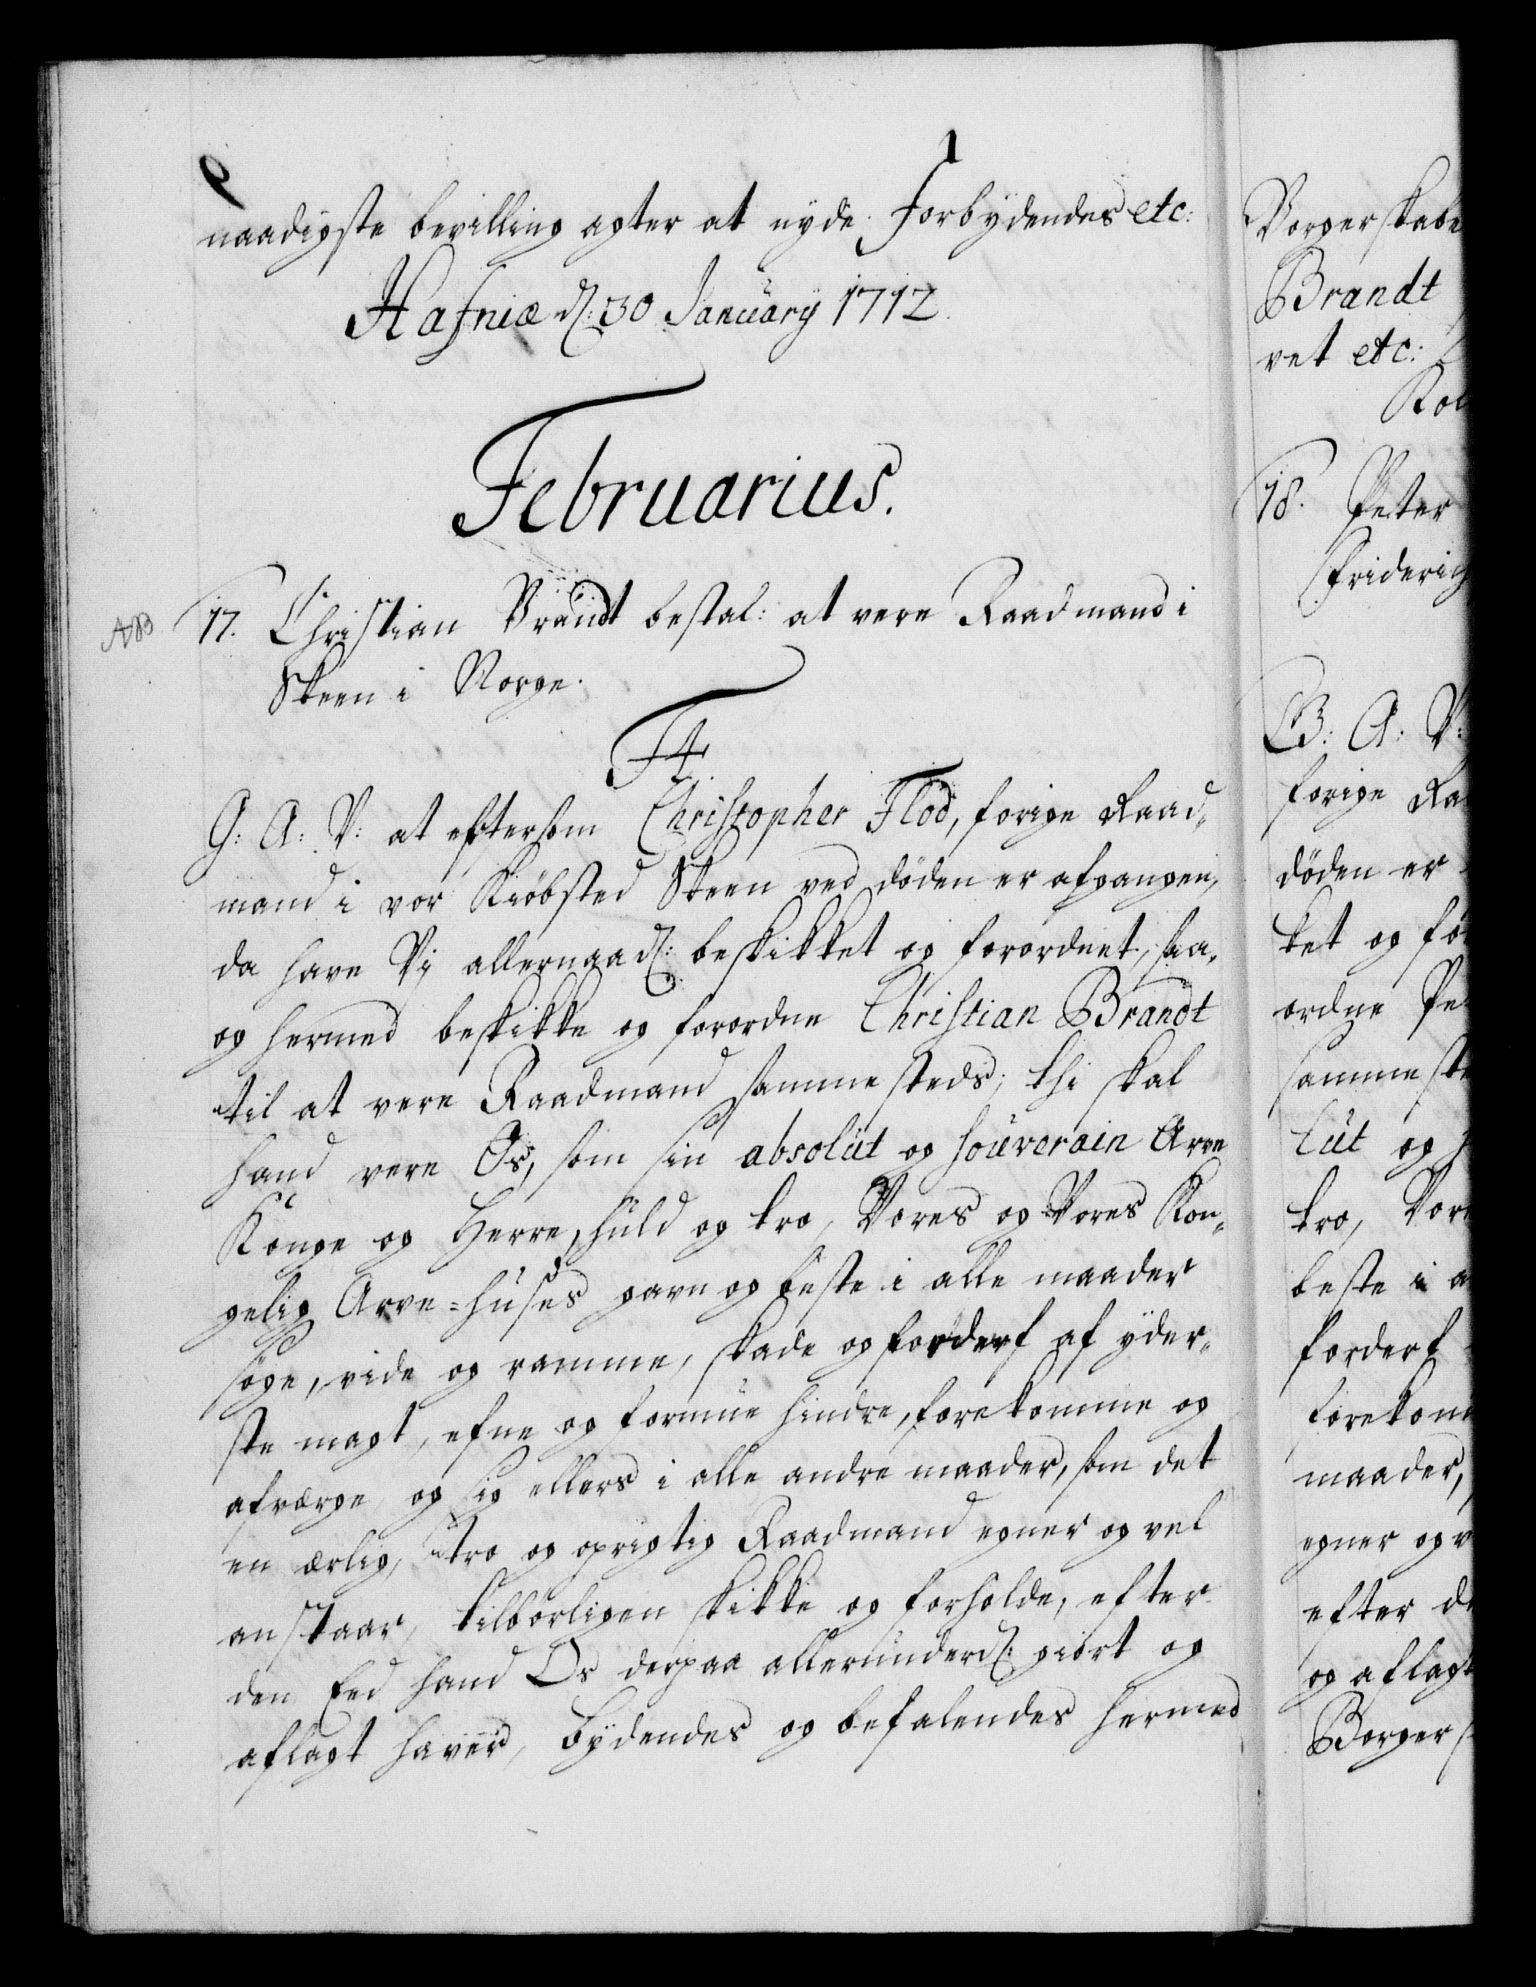 naadigste bevilling agter at nyde. Forbydendes etc:
Hafniæ d: 30 January 1712.
Februarius.
AB
17. Christian Brandt bestal: at vere Raadmand i
Skeen i Norge.
F4
G: A: V: at eftersom Christopher Flod, forige Raad-
mand i vor Kiöbsted Skeen ved döden er afgangen,
da have Vi allernaad: beskikket og forordnet, saa-
og hermed beskikke og forordne Christian Brandt
til at vere Raadmand sammesteds; thi skal
hand vere Os, som sin absolut og souverain Arve
Konge og Herre, huld og tro, Vores og Vores Kon-
gelig Arve-huses gavn og beste i alle maader
söge, vide og ramme, skade og forderf af yder-
ste magt, efne og formue hindre, forekomme og
afværge, og sig ellers i alle andre maader, som det
en ærlig, tro og oprigtig Raadmand egner og vel
anstaar, tilbörligen skikke og forholde, efter
den Eed hand Os derpaa allerunderd: giort og
aflagt haver, bydendes og befalendes hermed
Borgerskabe
Brandt
vet etc:
18. Peter
Friderich
G: A: V:
forige Ra
döden er
ket og for
ordne Pe
sammeste
lut og
tro, Vor
beste i a
forderf
forekom
maader,
egner og v
efter de
og aflagt
Borger